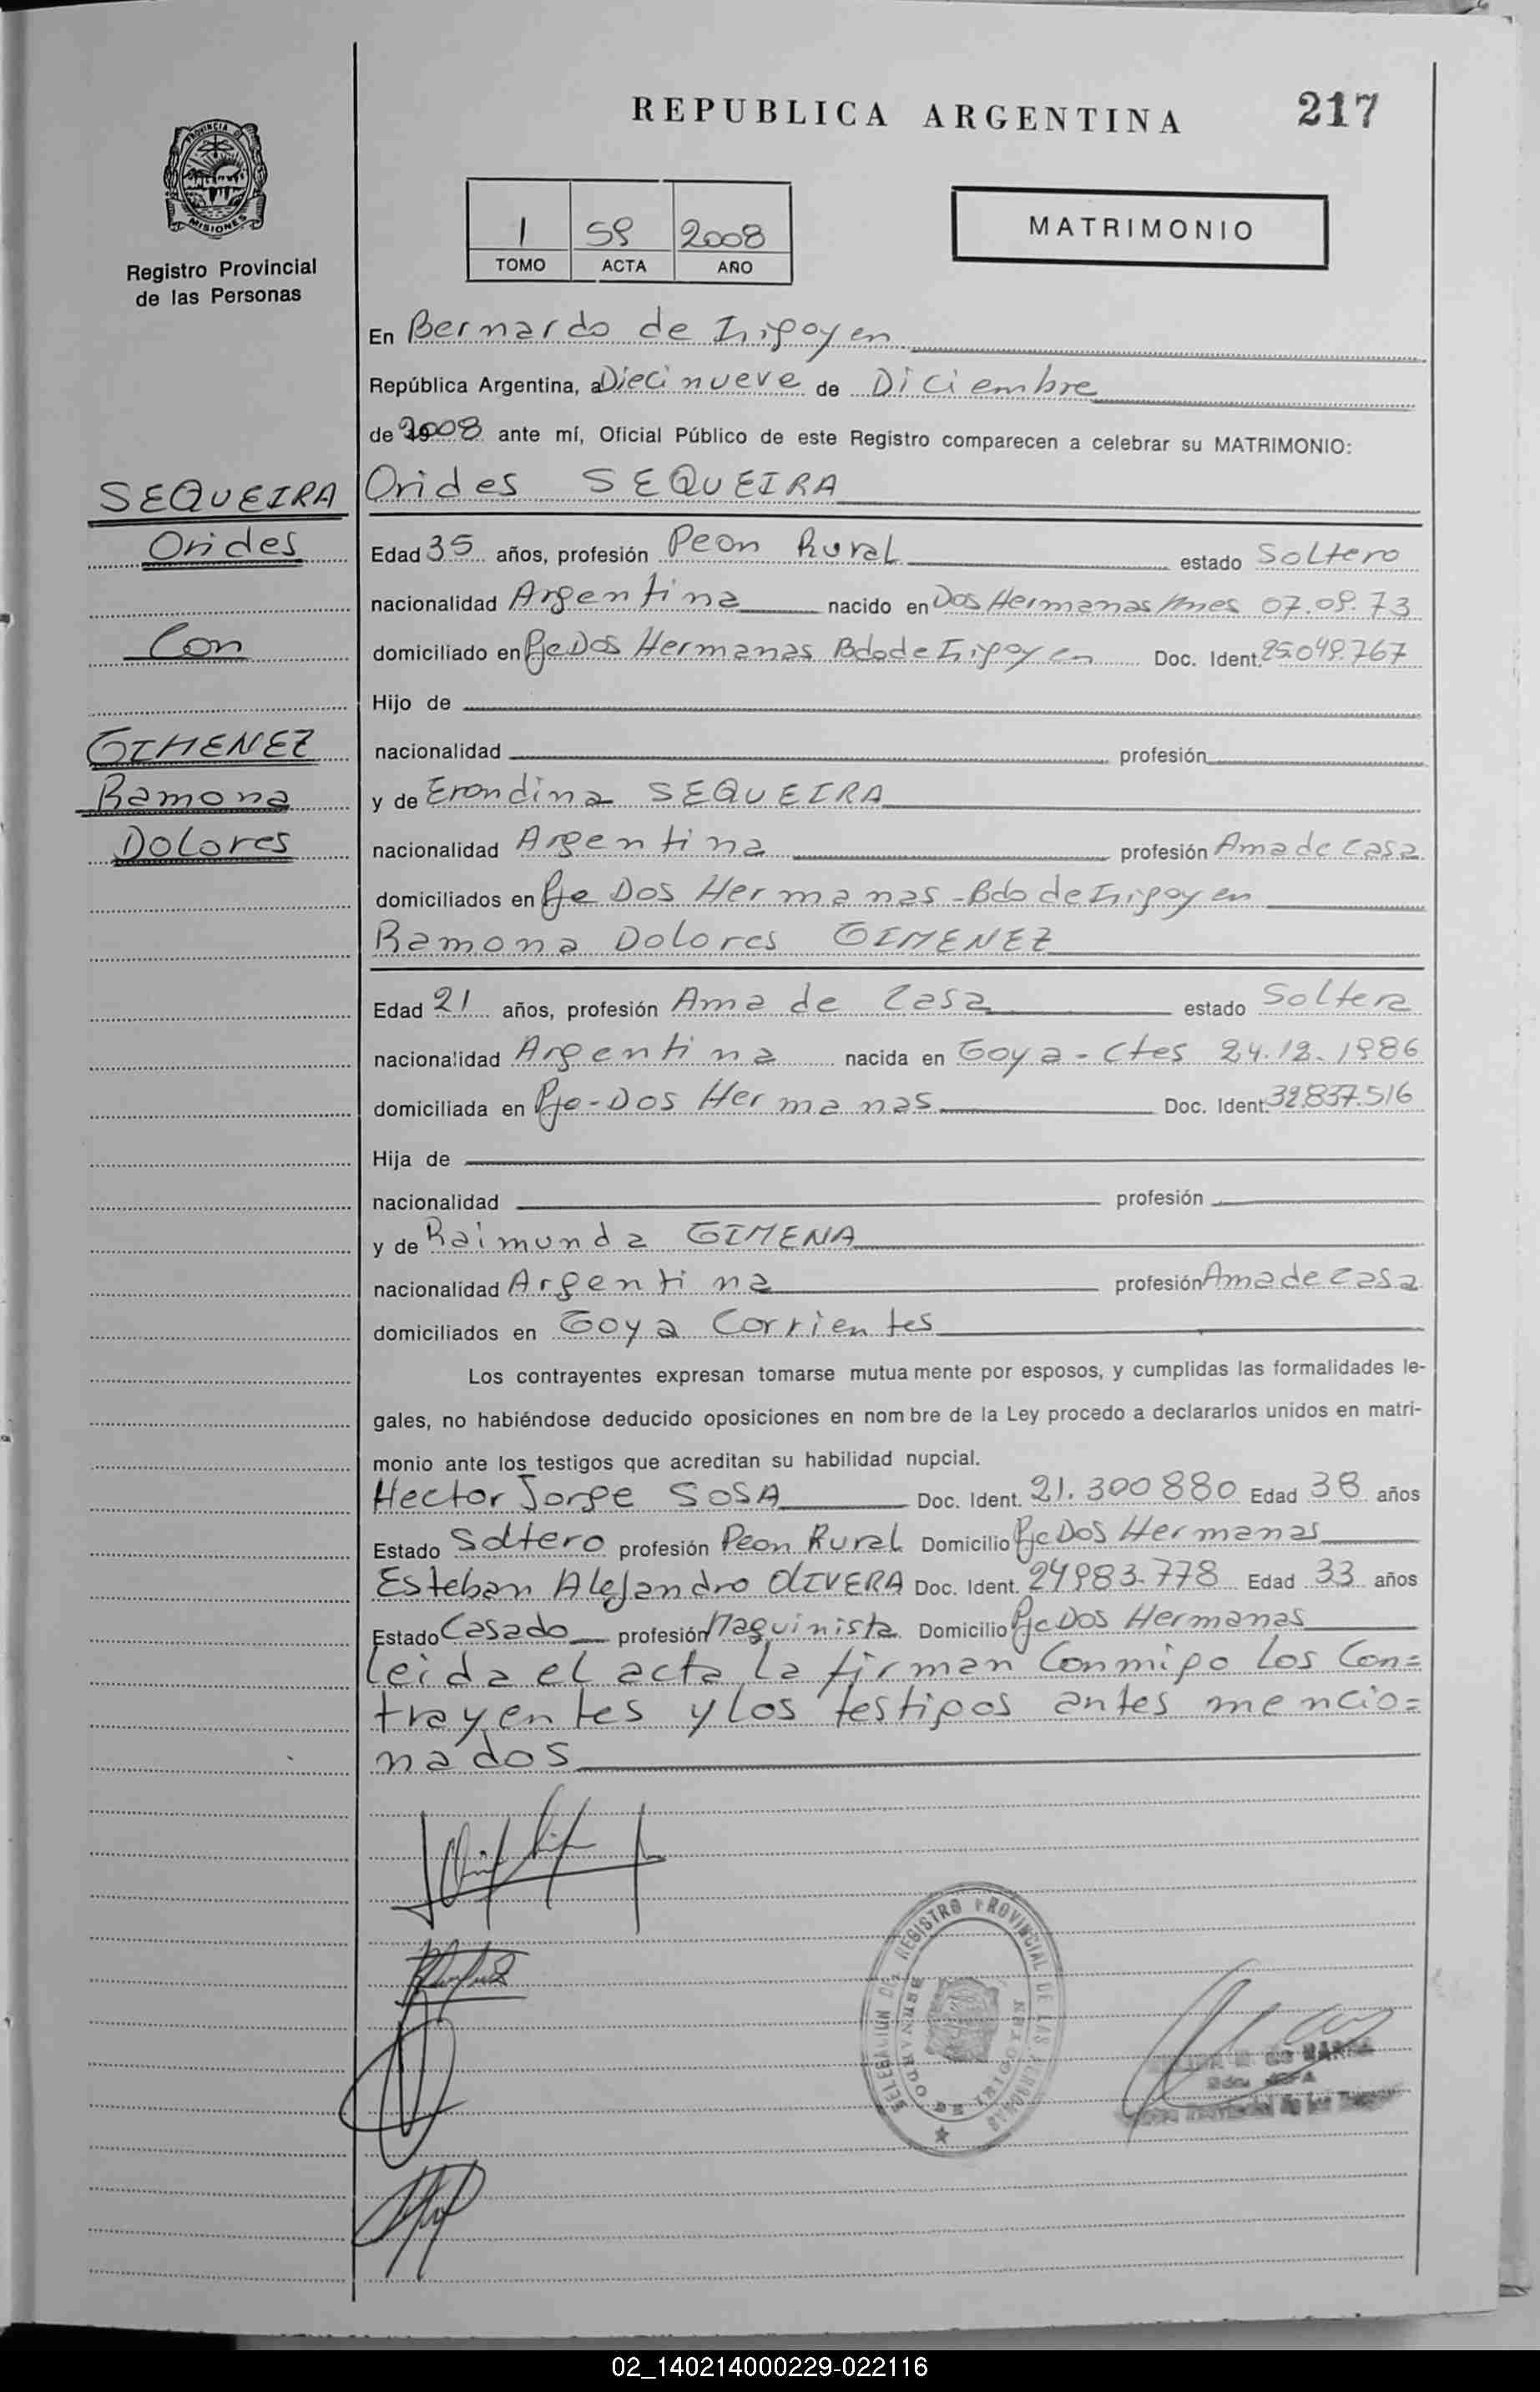 REPUBLICA ARGENTINA
217
PROVINCIA DE
MISIONES
Registro Provincial
de las Personas
1 59 2008
TOMO ACTA AÑO
MATRIMONIO
En Bernardo de Irigoyen
República Argentina, a Diecinueve de Diciembre
de 2008 ante mí, Oficial Público de este Registro comparecen a celebrar su MATRIMONIO:
SEQUEIRA
Orides
Con
GIMENEZ
Ramona
Dolores
Orides SEQUEIRA
Edad 35 años, profesión Peon Rural estado Soltero
nacionalidad Argentina nacido en Dos Hermanas Mnes 07.09.73
domiciliado en Pje Dos Hermanas Bdo de Irigoyen Doc. Ident. 25.049.767
Hijo de
nacionalidad profesión
y de Erondina SEQUEIRA
nacionalidad Argentina profesión Ama de Casa
domiciliados en Pje Dos Hermanas - Bdo de Irigoyen
Ramona Dolores GIMENEZ
Edad 21 años, profesión Ama de Casa estado Soltera
nacionalidad Argentina nacida en Goya - Ctes 24.12.1986
domiciliada en Pje - Dos Hermanas Doc. Ident. 32.837.516
Hija de
nacionalidad profesión
y de Raimunda GIMENA
nacionalidad Argentina profesión Ama de Casa
domiciliados en Goya Corrientes
Los contrayentes expresan tomarse mutua mente por esposos, y cumplidas las formalidades le-
gales, no habiéndose deducido oposiciones en nom bre de la Ley procedo a declararlos unidos en matri-
monio ante los testigos que acreditan su habilidad nupcial.
Hector Jorge SOSA Doc. Ident. 21.300880 Edad 38 años
Estado Soltero profesión Peon Rural Domicilio Pje Dos Hermanas
Esteban Alejandro OLIVERA Doc. Ident. 24983.778 Edad 33 años
Estado Casado profesión Maquinista Domicilio Pje Dos Hermanas
Leida el acta la firman Conmigo los Con=
trayentes y los testigos antes mencio=
nados
REGISTRO PROVINCIAL DE LAS
02_140214000229-022116